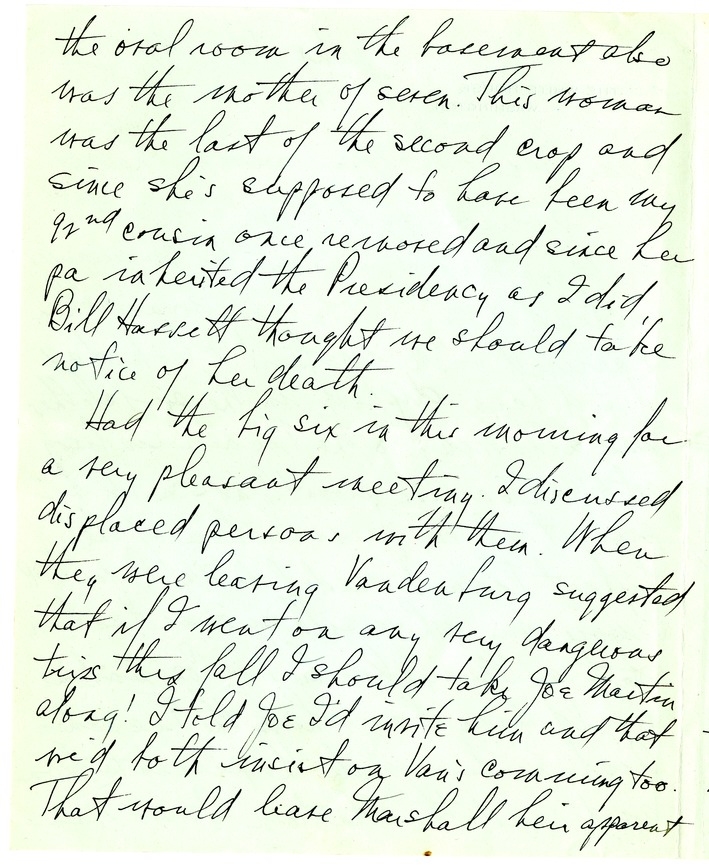 the oval room in the basement also
was the mother of seven. This woman
was the last of the second crop and
since she's supposed to have been my
92nd cousin once removed and since her
pa inherited the Presidency as I did,
Bill Hassett thought we should take
notice of her death.
Had the big six in this morning for
a very pleasant meeting. I discussed
displaced persons with them. When
they were leaving Vandenburg suggested
that if I went on any very dangerous
trips this fall I should take Joe Martin
along! I told Joe I'd invite him and that
we'd both insist on Van's comming too.
That would leave Marshall heir apparent